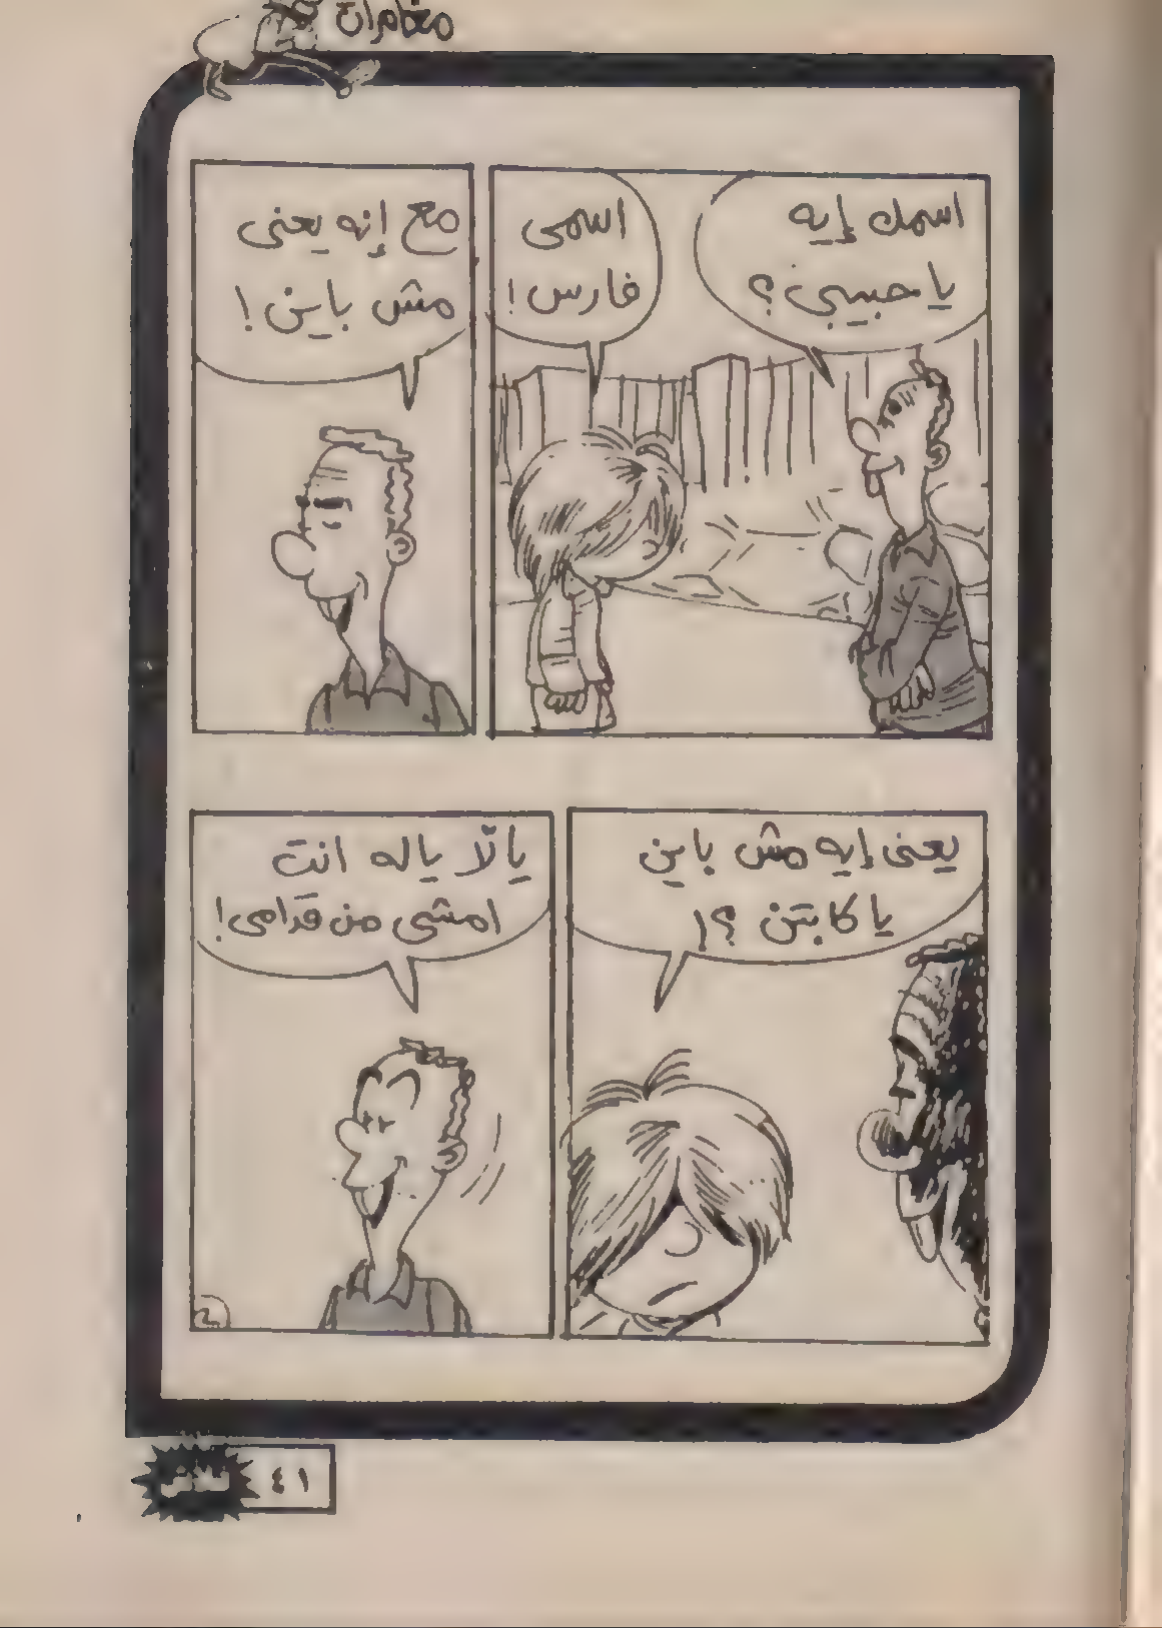 مغامرات
اسمك إيه
يا حبيبي؟
اسمى
فارس!
مع إنه يعنى
مش باين!
يعنى إيه مش باين
يا كابتن؟!
يالّا ياله انت
امشى من قدامى!
فلاش
٤١